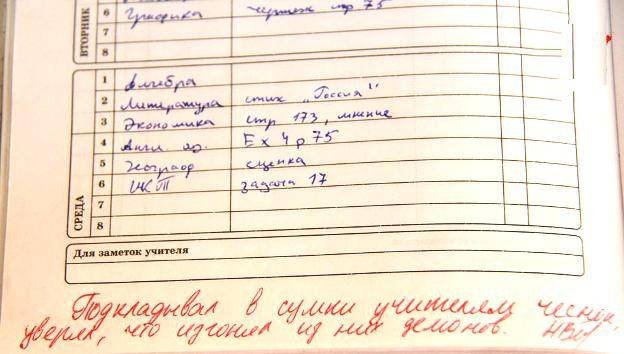 ВТОРНИК
6 Графика чертеж стр 75
7
8
СРЕДА
1 Алгебра
2 Литература стих „Россия"
3 Экономика стр 173, мнение
4 Англ яз. Ex 4 p 75
5 Географ сценка
6 ИКТ задача 17
7
8
Для заметок учителя
Подкладывал в сумки учителям чеснок,
уверял, что изгонял из них демонов.